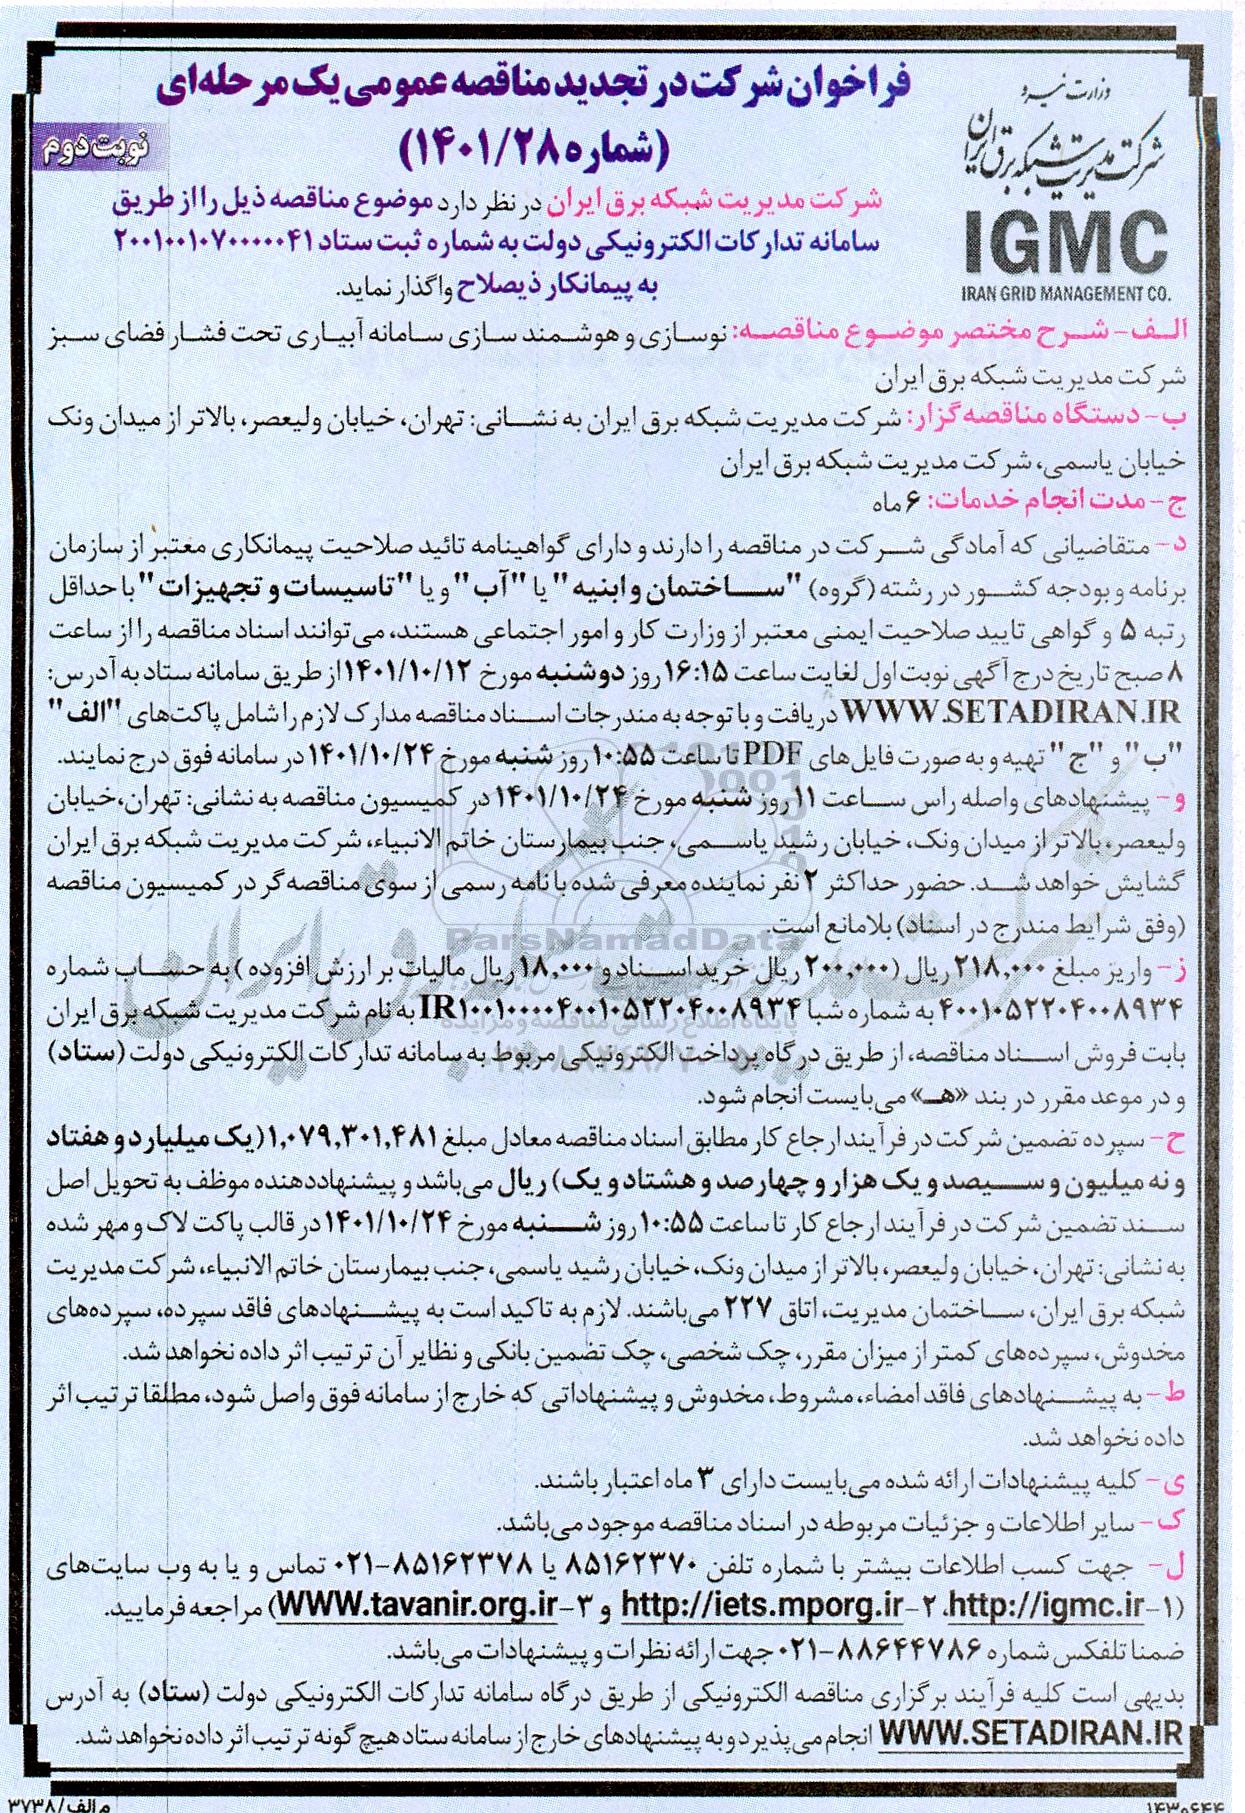 فراخوان شرکت در تجدید مناقصه عمومی یک مرحله‌ای
(شماره ۱۴۰۱/۲۸)
نوبت دوم
وزارت نیرو
شرکت مدیریت شبکه برق ایران
IGMC
IRAN GRID MANAGEMENT CO.
شرکت مدیریت شبکه برق ایران در نظر دارد موضوع مناقصه ذیل را از طریق
سامانه تدارکات الکترونیکی دولت به شماره ثبت ستاد ۲۰۰۱۰۰۱۰۷۰۰۰۰۰۴۱
به پیمانکار ذیصلاح واگذار نماید.
الف- شرح مختصر موضوع مناقصه: نوسازی و هوشمند سازی سامانه آبیاری تحت فشار فضای سبز
شرکت مدیریت شبکه برق ایران
ب- دستگاه مناقصه گزار: شرکت مدیریت شبکه برق ایران به نشانی: تهران، خیابان ولیعصر، بالاتر از میدان ونک
خیابان یاسمی، شرکت مدیریت شبکه برق ایران
ج- مدت انجام خدمات: ۶ ماه
د- متقاضیانی که آمادگی شرکت در مناقصه را دارند و دارای گواهینامه تائید صلاحیت پیمانکاری معتبر از سازمان
برنامه و بودجه کشور در رشته (گروه) "ساختمان و ابنیه" یا "آب" و یا "تاسیسات و تجهیزات" با حداقل
رتبه ۵ و گواهی تایید صلاحیت ایمنی معتبر از وزارت کار و امور اجتماعی هستند، می‌توانند اسناد مناقصه را از ساعت
۸ صبح تاریخ درج آگهی نوبت اول لغایت ساعت ۱۶:۱۵ روز دوشنبه مورخ ۱۴۰۱/۱۰/۱۲ از طریق سامانه ستاد به آدرس:
WWW.SETADIRAN.IR دریافت و با توجه به مندرجات اسناد مناقصه مدارک لازم را شامل پاکت‌های "الف"
"ب" و "ج" تهیه و به صورت فایل‌های PDF تا ساعت ۱۰:۵۵ روز شنبه مورخ ۱۴۰۱/۱۰/۲۴ در سامانه فوق درج نمایند.
و- پیشنهادهای واصله راس ساعت ۱۱ روز شنبه مورخ ۱۴۰۱/۱۰/۲۴ در کمیسیون مناقصه به نشانی: تهران،خیابان
ولیعصر، بالاتر از میدان ونک، خیابان رشید یاسمی، جنب بیمارستان خاتم الانبیاء، شرکت مدیریت شبکه برق ایران
گشایش خواهد شد. حضور حداکثر ۲ نفر نماینده معرفی شده با نامه رسمی از سوی مناقصه گر در کمیسیون مناقصه
(وفق شرایط مندرج در اسناد) بلامانع است.
ParsNamadData
ز- واریز مبلغ ۲۱۸,۰۰۰ ریال (۲۰۰,۰۰۰ ریال خرید اسناد و ۱۸,۰۰۰ ریال مالیات بر ارزش افزوده) به حساب شماره
۴۰۰۱۰۵۲۲۰۴۰۰۸۹۳۴ به شماره شبا IR۱۰۰۱۰۰۰۰۴۰۰۱۰۵۲۲۰۴۰۰۸۹۳۴ به نام شرکت مدیریت شبکه برق ایران
پایگاه اطلاع رسانی مناقصه و مزایده
بابت فروش اسناد مناقصه، از طریق درگاه پرداخت الکترونیکی مربوط به سامانه تدارکات الکترونیکی دولت (ستاد)
و در موعد مقرر در بند «هـ» می‌بایست انجام شود.
ح- سپرده تضمین شرکت در فرآیند ارجاع کار مطابق اسناد مناقصه معادل مبلغ ۱,۰۷۹,۳۰۱,۴۸۱ (یک میلیارد و هفتاد
و نه میلیون و سیصد و یک هزار و چهارصد و هشتاد و یک) ریال می‌باشد و پیشنهاددهنده موظف به تحویل اصل
سند تضمین شرکت در فرآیند ارجاع کار تا ساعت ۱۰:۵۵ روز شنبه مورخ ۱۴۰۱/۱۰/۲۴ در قالب پاکت لاک و مهر شده
به نشانی: تهران، خیابان ولیعصر، بالاتر از میدان ونک، خیابان رشید یاسمی، جنب بیمارستان خاتم الانبیاء، شرکت مدیریت
شبکه برق ایران، ساختمان مدیریت، اتاق ۲۲۷ می‌باشند. لازم به تاکید است به پیشنهادهای فاقد سپرده، سپرده‌های
مخدوش، سپرده‌های کمتر از میزان مقرر، چک شخصی، چک تضمین بانکی و نظایر آن ترتیب اثر داده نخواهد شد.
ط- به پیشنهادهای فاقد امضاء، مشروط، مخدوش و پیشنهاداتی که خارج از سامانه فوق واصل شود، مطلقا ترتیب اثر
داده نخواهد شد.
ی- کلیه پیشنهادات ارائه شده می‌بایست دارای ۳ ماه اعتبار باشند.
ک- سایر اطلاعات و جزئیات مربوطه در اسناد مناقصه موجود می‌باشد.
ل- جهت کسب اطلاعات بیشتر با شماره تلفن ۸۵۱۶۲۳۷۰ یا ۸۵۱۶۲۳۷۸-۰۲۱ تماس و یا به وب سایت‌های
(۱-http://igmc.ir، ۲-http://iets.mporg.ir و ۳-WWW.tavanir.org.ir) مراجعه فرمایید.
ضمنا تلفکس شماره ۸۸۶۴۴۷۸۶-۰۲۱ جهت ارائه نظرات و پیشنهادات می‌باشد.
بدیهی است کلیه فرآیند برگزاری مناقصه الکترونیکی از طریق درگاه سامانه تدارکات الکترونیکی دولت (ستاد) به آدرس
WWW.SETADIRAN.IR انجام می‌پذیرد و به پیشنهادهای خارج از سامانه ستاد هیچ گونه ترتیب اثر داده نخواهد شد.
۱۴۳۰۶۴۴
م الف/۳۷۳۸